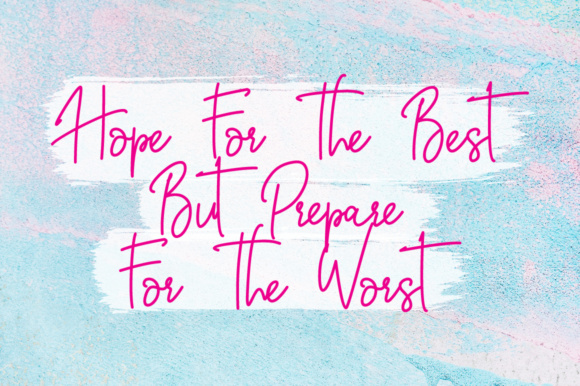 Hope For The Best
But Prepare
For The Worst